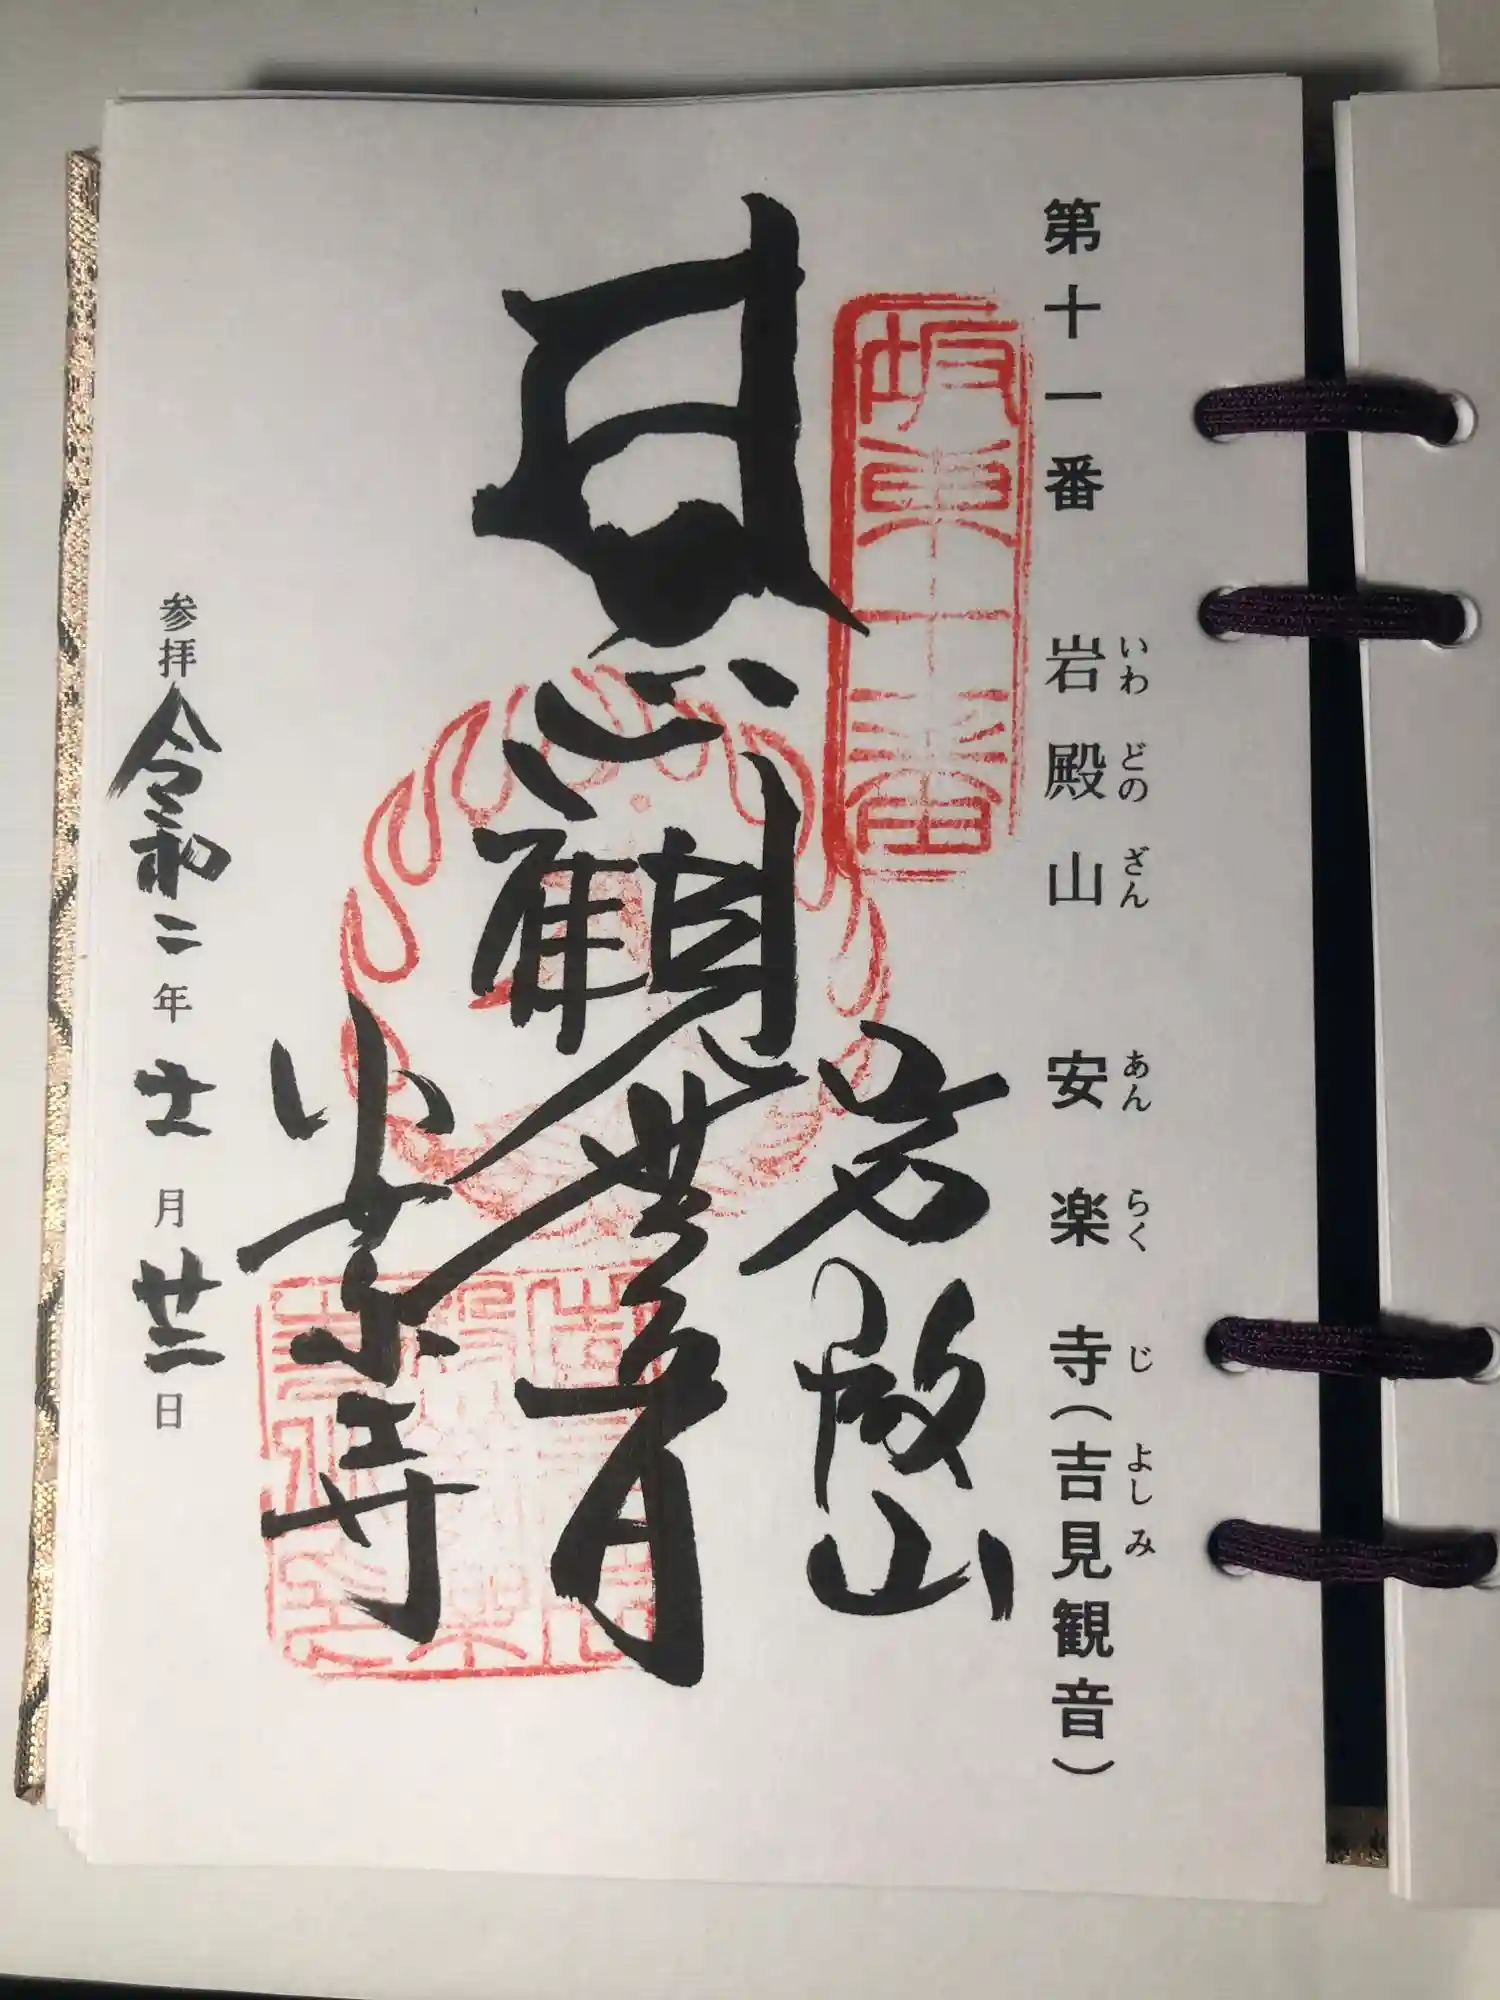 第十一番 岩殿山 安楽寺(吉見観音)
いわ どの ざん あん らく じ よしみ
坂東十一番
岩殿山
観世音
安楽寺
参拝 令和二年 十二月 廿二日